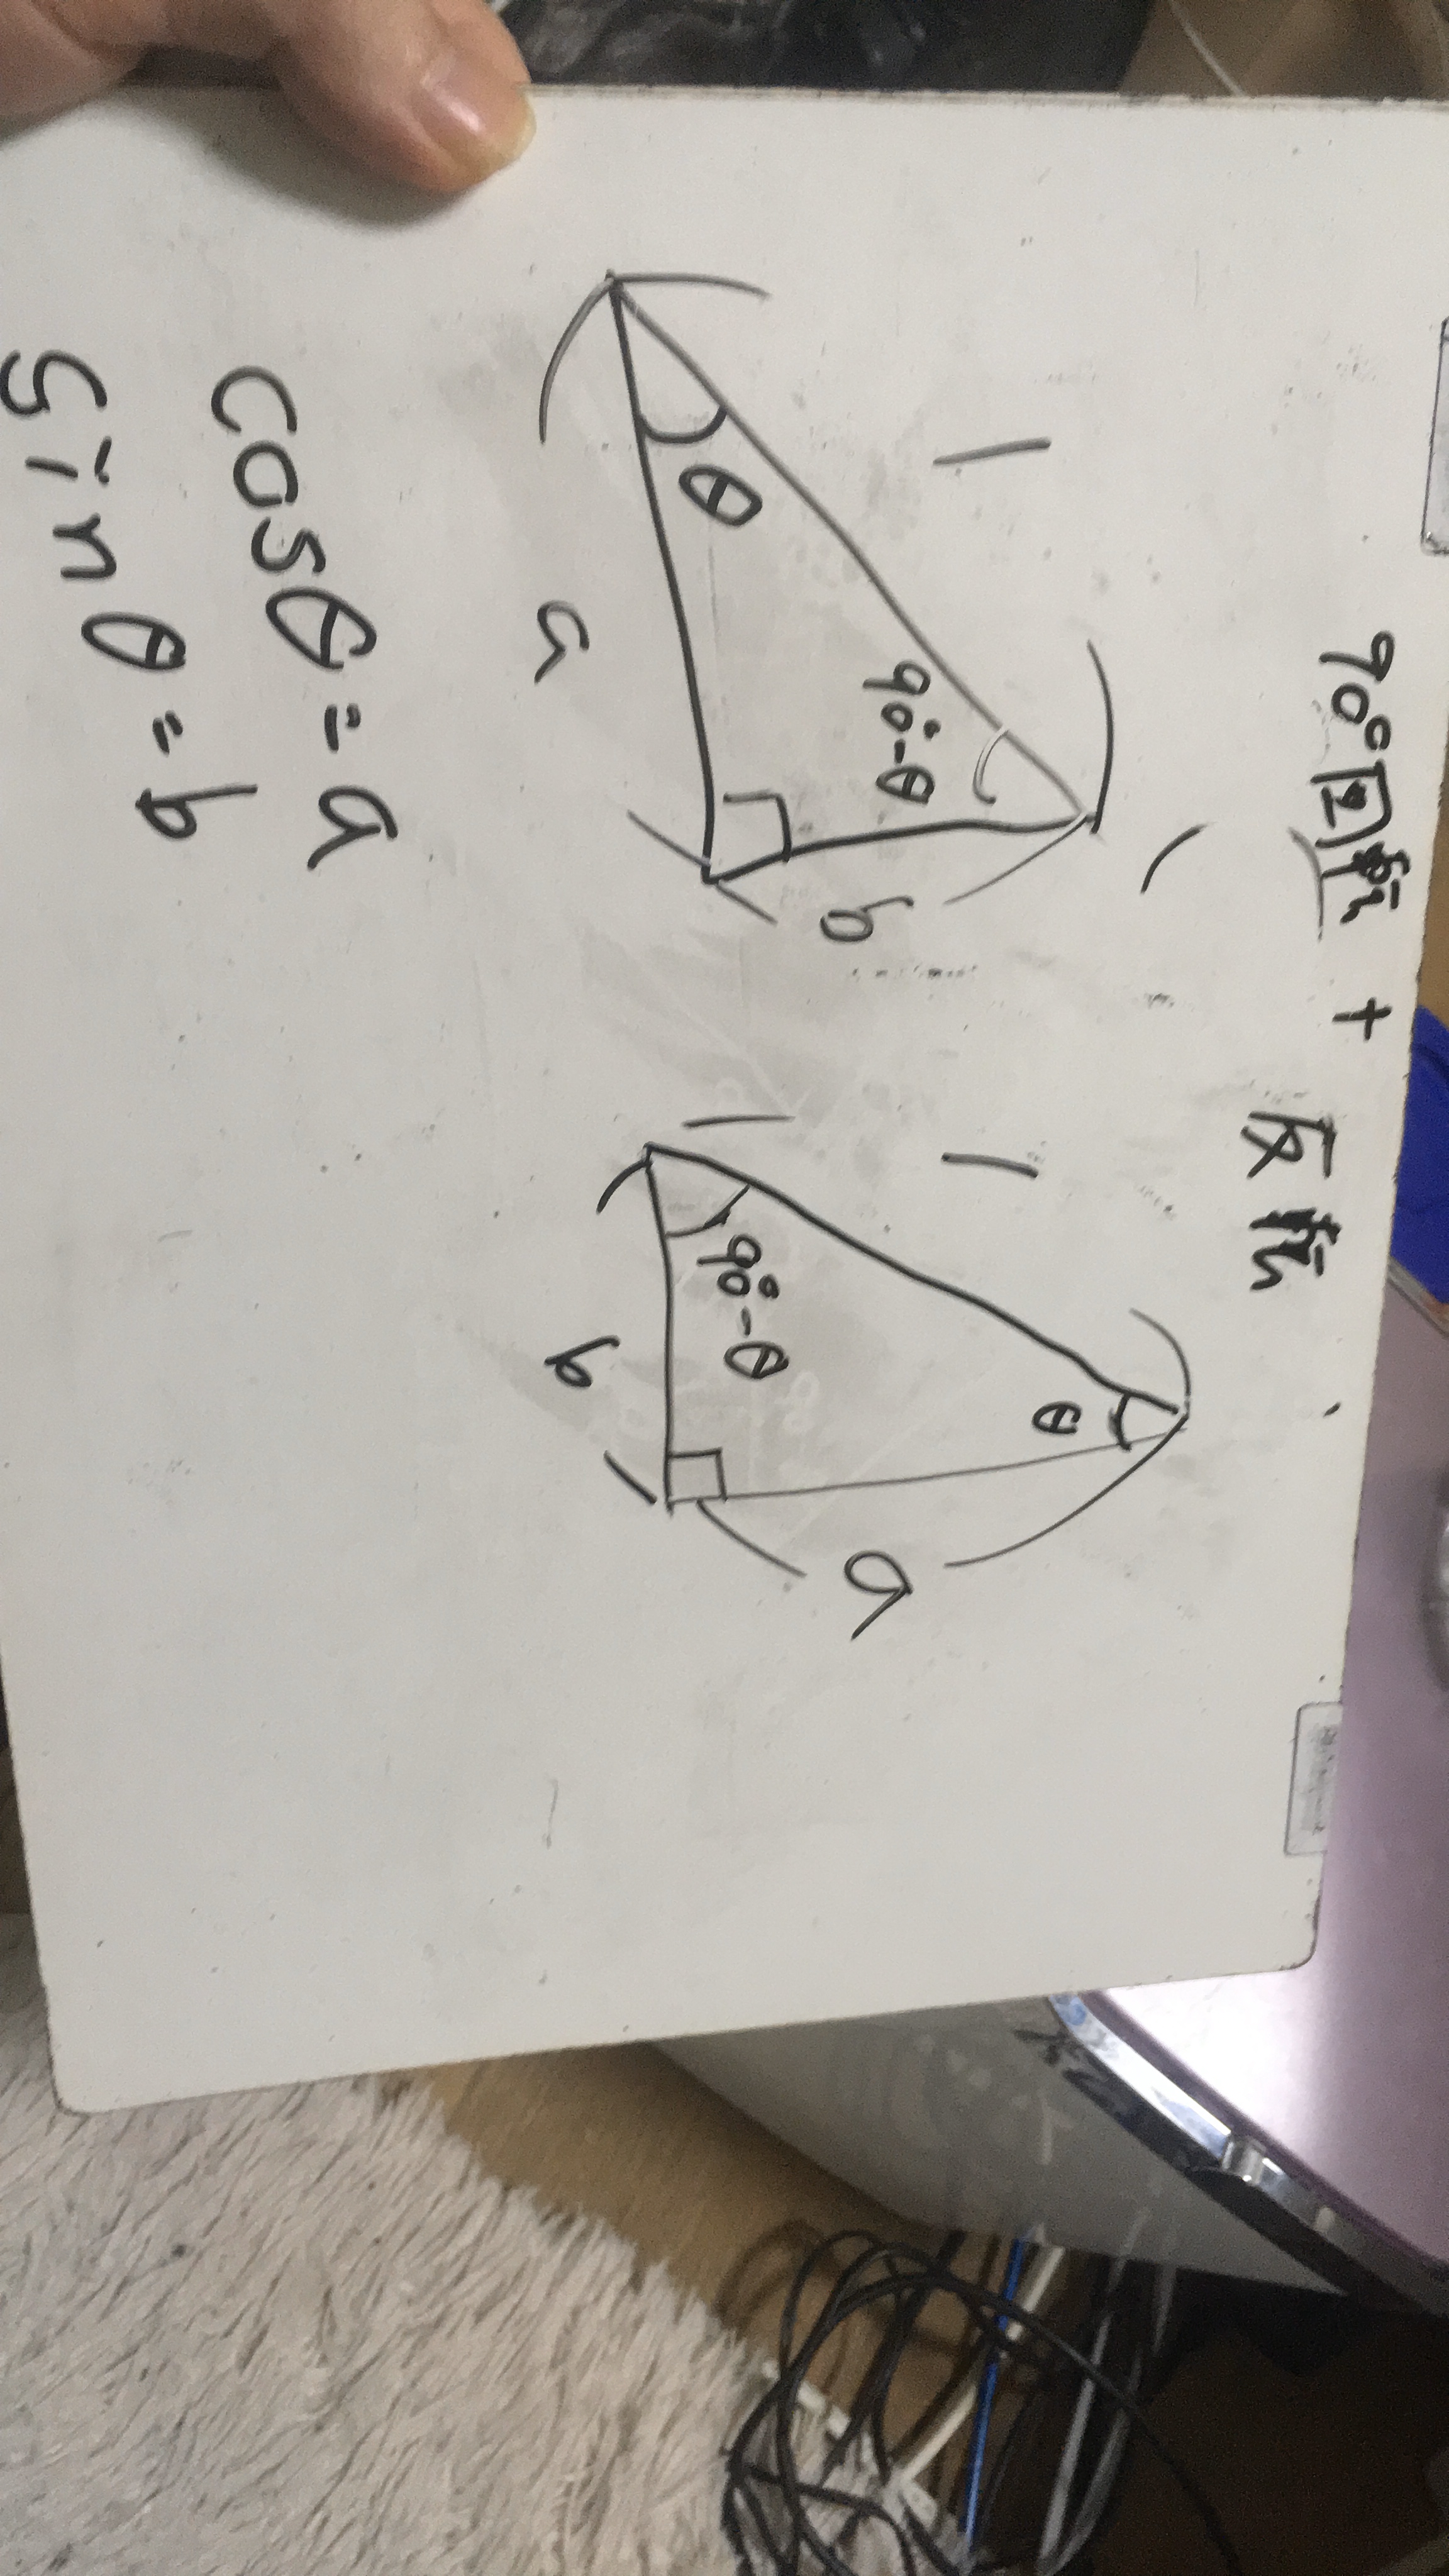 90°回転 + 反転
1
θ
90°-θ
a
b
1
90°-θ
θ
b
a
cosθ = a
sinθ = b